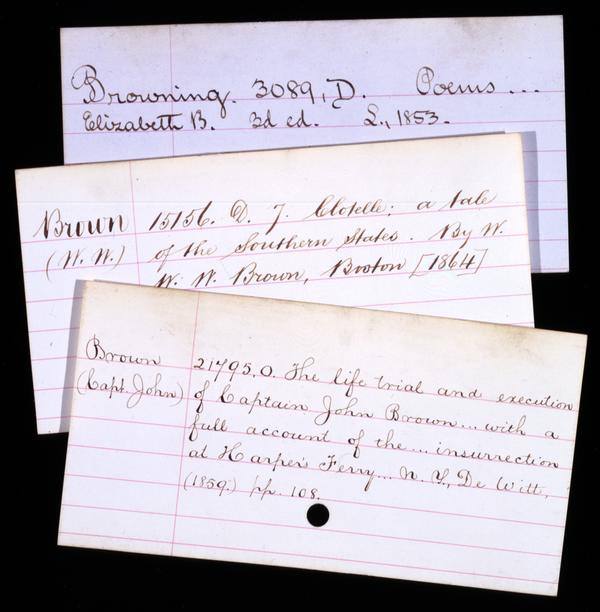 Browning. 3089, D. Poems ...
Elizabeth B. 3d ed. L., 1853.
Brown 15156. D. 7. Clotelle; a tale
(W. W.) of the Southern States. By W.
W. W. Brown, Boston [1864]
Brown 21795.0. The life trial and execution
(Capt. John) of Captain John Brown ... with a
full account of the ... insurrection
at Harper's Ferry ... N. Y., De Witt,
(1859.) pp. 108.